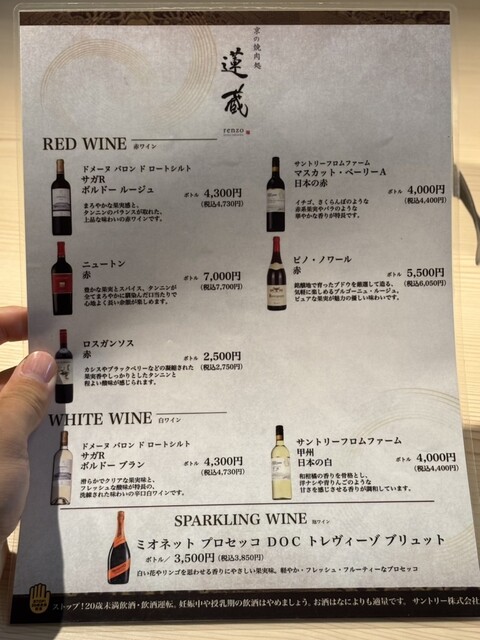 京の焼肉処
蓮蔵
renzo
RED WINE 赤ワイン
ドメーヌ バロン ド ロートシルト
サガR
ボルドー ルージュ
ボトル 4,300円
(税込4,730円)
まろやかな果実感と、
タンニンのバランスが取れた、
上品な味わいの赤ワインです。
サントリーフロムファーム
マスカット・ベーリーA
日本の赤
ボトル 4,000円
(税込4,400円)
イチゴ、さくらんぼのような
赤系果実やバラのような
華やかな香りが特長です。
ニュートン
赤
ボトル 7,000円
(税込7,700円)
豊かな果実とスパイス、タンニンが
全てまろやかに馴染んだ口当たりで
心地よく長い余韻が楽しめます。
ピノ・ノワール
赤
ボトル 5,500円
(税込6,050円)
銘醸地で育ったブドウを厳選して造る、
気軽に楽しめるブルゴーニュ・ルージュ。
ピュアな果実が魅力の優しい味わいです。
ロスガンソス
赤
ボトル 2,500円
(税込2,750円)
カシスやブラックベリーなどの凝縮された
果実香やしっかりとしたタンニンと
程よい酸味が感じられます。
WHITE WINE 白ワイン
ドメーヌ バロン ド ロートシルト
サガR
ボルドー ブラン
ボトル 4,300円
(税込4,730円)
滑らかでクリアな果実味と、
フレッシュな酸味が特長の、
洗練された味わいの辛口白ワインです。
サントリーフロムファーム
甲州
日本の白
ボトル 4,000円
(税込4,400円)
和柑橘の香りを骨格とし、
洋ナシや青りんごのような
甘さを感じさせる香りが調和しています。
SPARKLING WINE 泡ワイン
ミオネット プロセッコ DOC トレヴィーゾ ブリュット
ボトル／ 3,500円 (税込3,850円)
白い花やリンゴを思わせる香りにやさしい果実味。軽やか・フレッシュ・フルーティーなプロセッコ
ストップ！20歳未満飲酒・飲酒運転。妊娠中や授乳期の飲酒はやめましょう。お酒はなによりも適量です。 サントリー株式会社